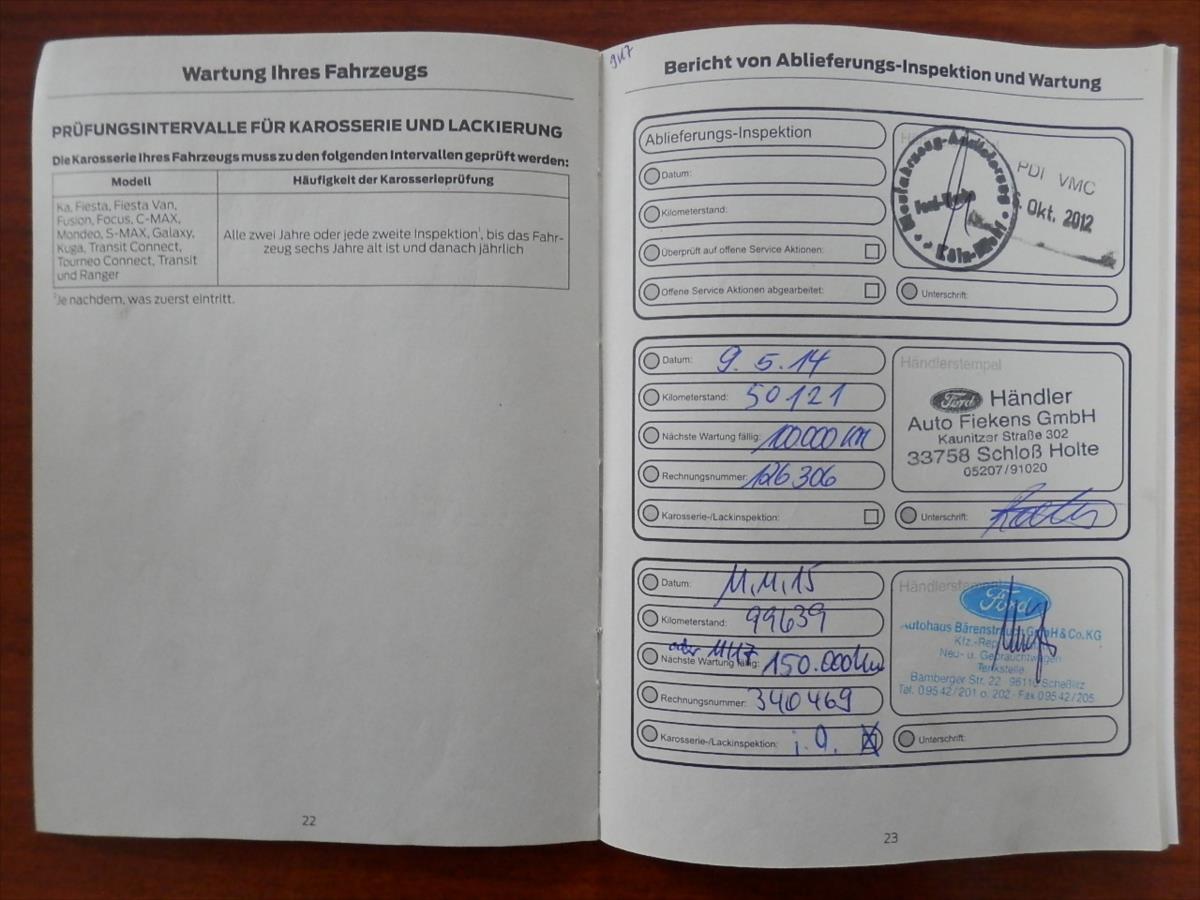 Wartung Ihres Fahrzeugs
PRÜFUNGSINTERVALLE FÜR KAROSSERIE UND LACKIERUNG
Die Karosserie Ihres Fahrzeugs muss zu den folgenden Intervallen geprüft werden:
Modell
Häufigkeit der Karosserieprüfung
Ka, Fiesta, Fiesta Van,
Fusion, Focus, C-MAX,
Mondeo, S-MAX, Galaxy,
Kuga, Transit Connect,
Tourneo Connect, Transit
und Ranger
Alle zwei Jahre oder jede zweite Inspektion¹, bis das Fahr-
zeug sechs Jahre alt ist und danach jährlich
¹Je nachdem, was zuerst eintritt.
22
Bericht von Ablieferungs-Inspektion und Wartung
Ablieferungs-Inspektion
Datum:
Kilometerstand:
Überprüft auf offene Service Aktionen:
Offene Service Aktionen abgearbeitet:
Neufahrzeug-Auslieferung
Köln
PDI VMC
Okt. 2012
Unterschrift:
Datum: 9.5.14
Kilometerstand: 50121
Nächste Wartung fällig: 100000 km
Rechnungsnummer: 126306
Karosserie-/Lackinspektion:
Händlerstempel
Ford Händler
Auto Fiekens GmbH
Kaunitzer Straße 302
33758 Schloß Holte
05207/91020
Unterschrift:
Datum: 11.11.15
Kilometerstand: 99639
oder 11/17
Nächste Wartung fällig: 150.000 km
Rechnungsnummer: 340469
Karosserie-/Lackinspektion: i.O. X
Händlerstempel
Ford
Autohaus Bärenstrauch GmbH & Co.KG
Neu- u. Gebrauchtwagen
Tankstelle
Bamberger Str. 22 · 96110 Scheßlitz
Tel. 09542/201 o. 202 · Fax 09542/205
Unterschrift:
23